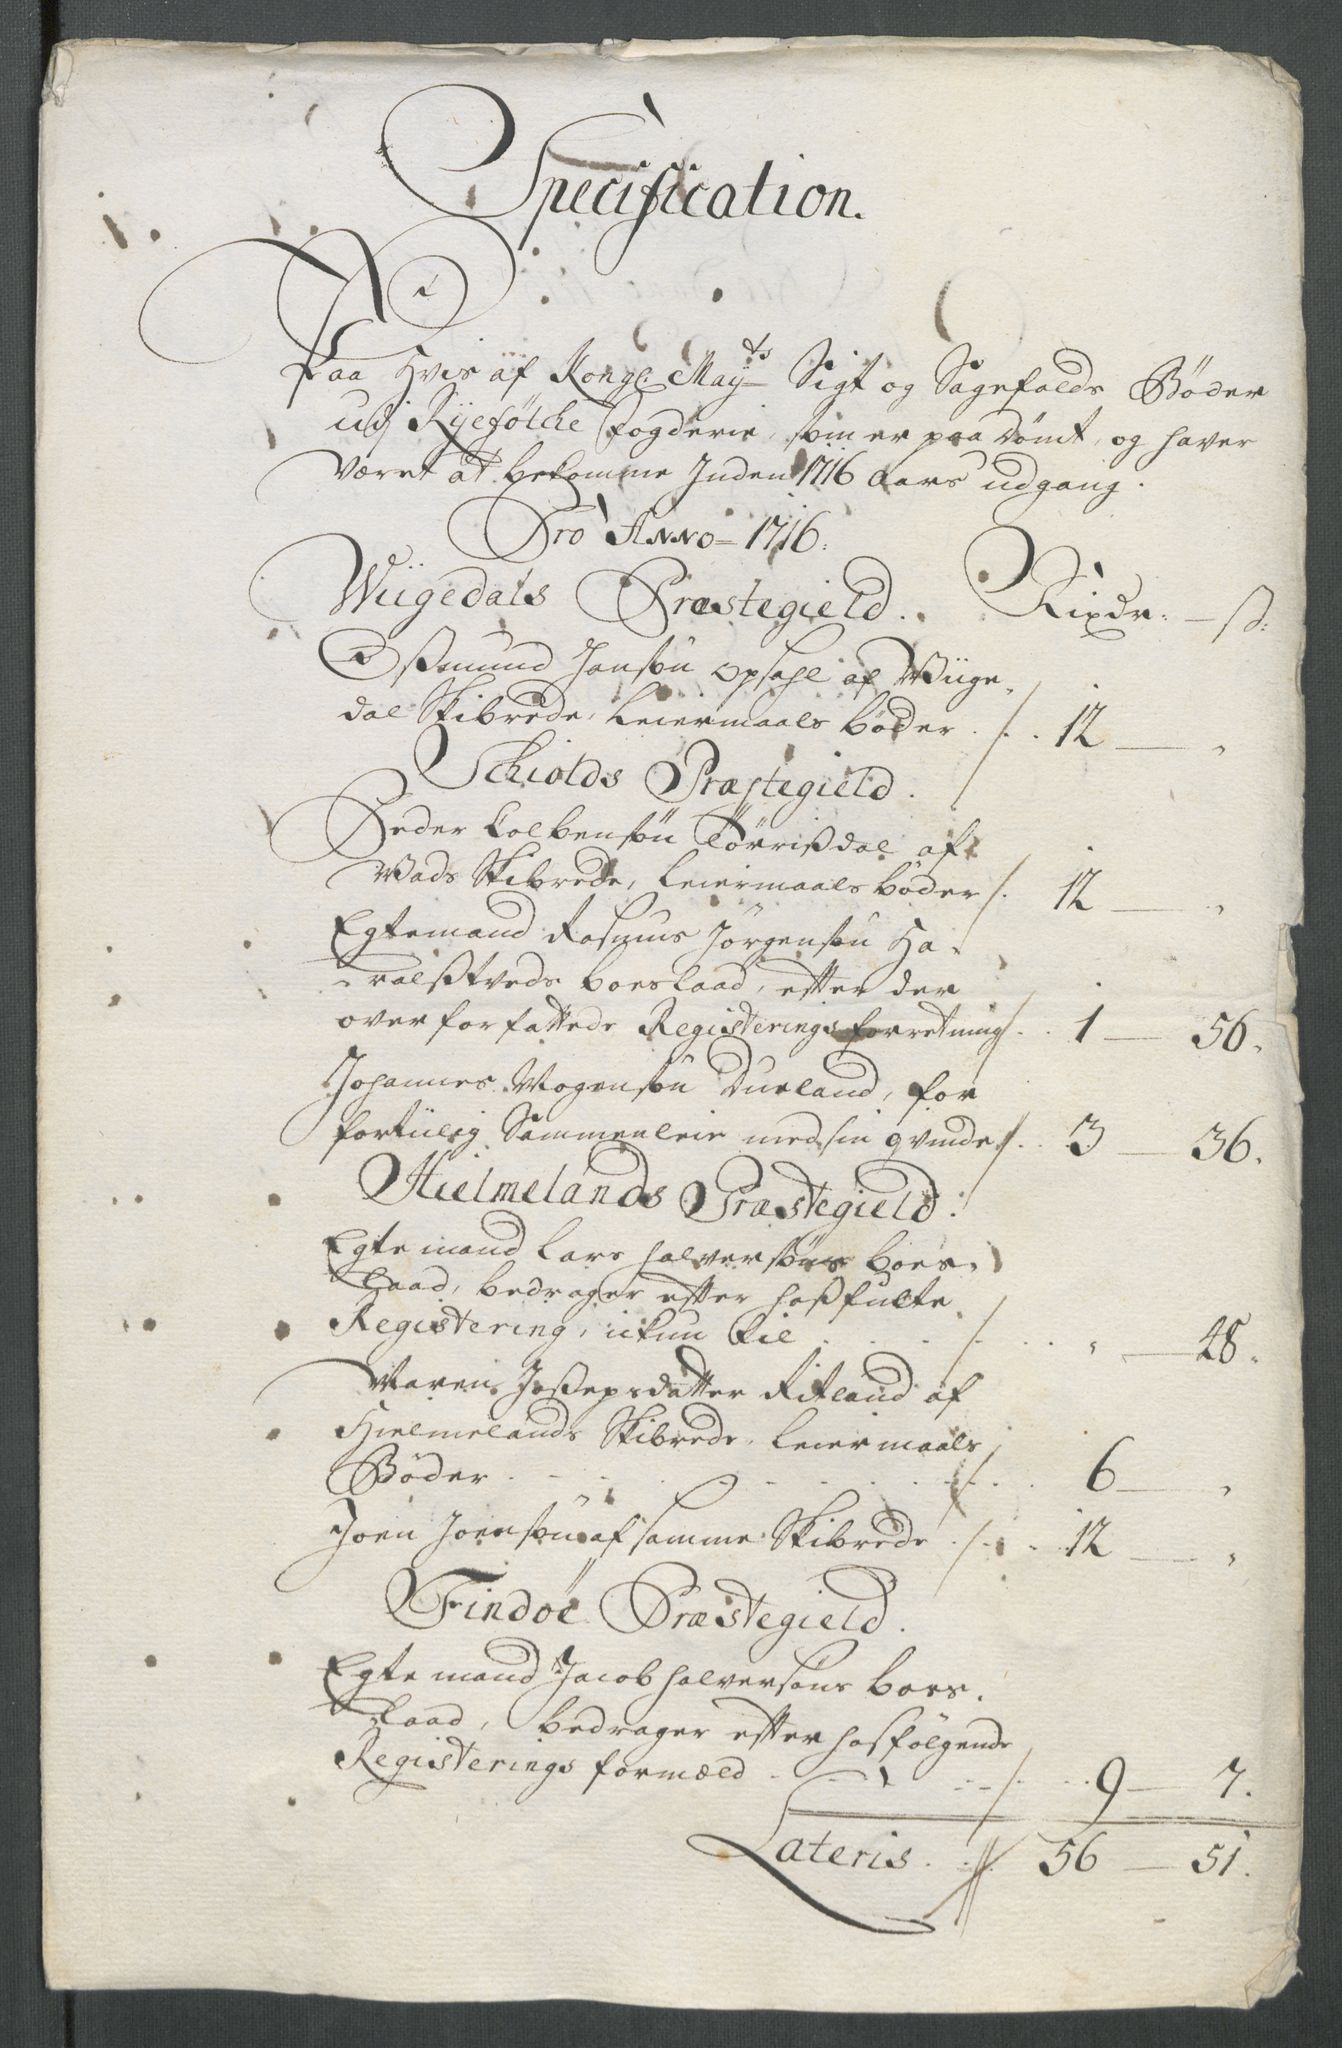 Specification.
Paa Hvis af Kongl: May^ts Sigt og Sagefalds Bøder
udj Ryefølche fogderie, som er paadømt, og haver
været at bekomme Inden 1716 aars udgang.
Pro Anno 1716:
Wiigedals Præstegield. Rixdr: – ß:
Aßmund Jansøn Opsahl af Wiige-
dal Skibrede, Leiermaals bøder . /. . 12 — "
Schiolds Præstegield.
Peder Colbensøn Tørrißdal af
Wads Skibrede, Leiermaals bøder /. 12 — "
Egtemand Rasmus Jørgensøn Ha-
ralßtveds boeslaad, efter der
over forfattede Registerings forretning /. . 1 — 56.
Johannes Mogensøn Dueland, for
fortiilig Sammenleie med sin qvinde /. . 3 — 36.
Hielmelands Præstegield.
Egtemand Lars Halversøns boes-
laad, bedrager efter hoßfulte
Registering, ikun til . . . . / . . " — 48.
Maren Joßepsdatter Ritland af
Hielmelands Skibrede, Leiermaals
Bøder . . . . . . . . . /. . . 6 — "
Joen Joensøn af samme Skibrede . /. . . 12 — "
Findøe Præstegield.
Egtemand Jacob Halversøns boes-
laad, bedrager efter hosfølgende
Registerings formæld . . . . /. . . . 9 — 7.
Lateris . . // 56 — 51.